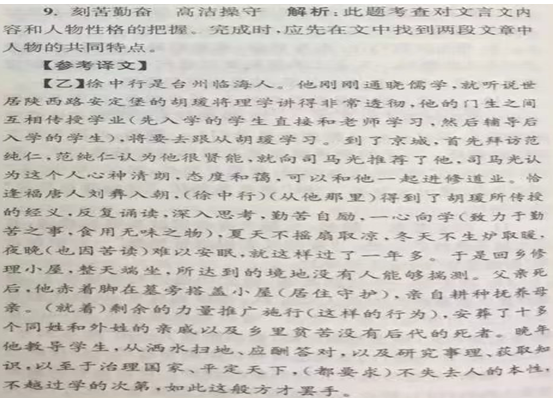 9. 刻苦勤奋　高洁操守　解析:此题考查对文言文内
容和人物性格的把握。完成时,应先在文中找到两段文章中
人物的共同特点。
【参考译文】
【乙】徐中行是台州临海人。他刚刚通晓儒学,就听说世
居陕西路安定堡的胡瑗将理学讲得非常透彻,他的门生之间
互相传授学业(先入学的学生直接和老师学习,然后辅导后
入学的学生),将要去跟从胡瑗学习。到了京城,首先拜访范
纯仁,范纯仁认为他很贤能,就向司马光推荐了他,司马光认
为这个人心神清朗,态度和蔼,可以和他一起进修道业。恰
逢福唐人刘彝入朝,(徐中行)(从他那里)得到了胡瑗所传授
的经义,反复诵读,深入思考,勤苦自励,一心向学(致力于勤
苦之事,食用无味之物),夏天不摇扇取凉,冬天不生炉取暖,
夜晚(也因苦读)难以安眠,就这样过了一年多。于是回乡修
理小屋,整天端坐,所达到的境地没有人能够揣测。父亲死
后,他赤着脚在墓旁搭盖小屋(居住守护),亲自耕种抚养母
亲。(就着)剩余的力量推广施行(这样的行为),安葬了十多
个同姓和外姓的亲戚以及乡里贫苦没有后代的死者。晚年
他教导学生,从洒水扫地、应酬答对,以及研究事理、获取知
识,以至于治理国家、平定天下,(都要求)不失去人的本性,
不越过学的次第,如此这般方才罢手。